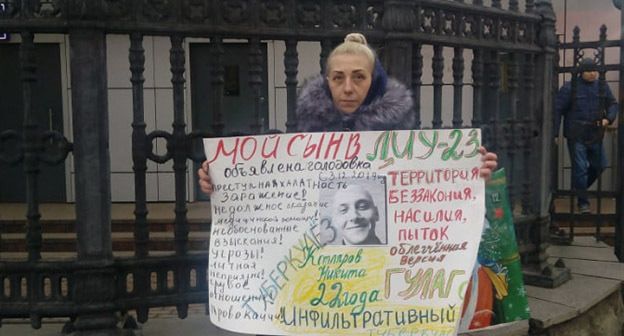 МОЙ СЫН В ЛИУ-23
объявлена голодовка
с 3.12.2019 год
преступная халатность
Заражение!
Недолжное оказание
медицинской помощи!
необоснованные
взыскания!
угрозы!
личная
неприязнь!
грубое
отношение!
Провокации!
ТУБЕРКУЛЁЗ
Котляров
Никита
22 года
ИНФИЛЬТРАТИВНЫЙ
ТЕРРИТОРИЯ
БЕЗЗАКОНИЯ,
НАСИЛИЯ,
ПЫТОК
облегчённая
версия
ГУЛАГ